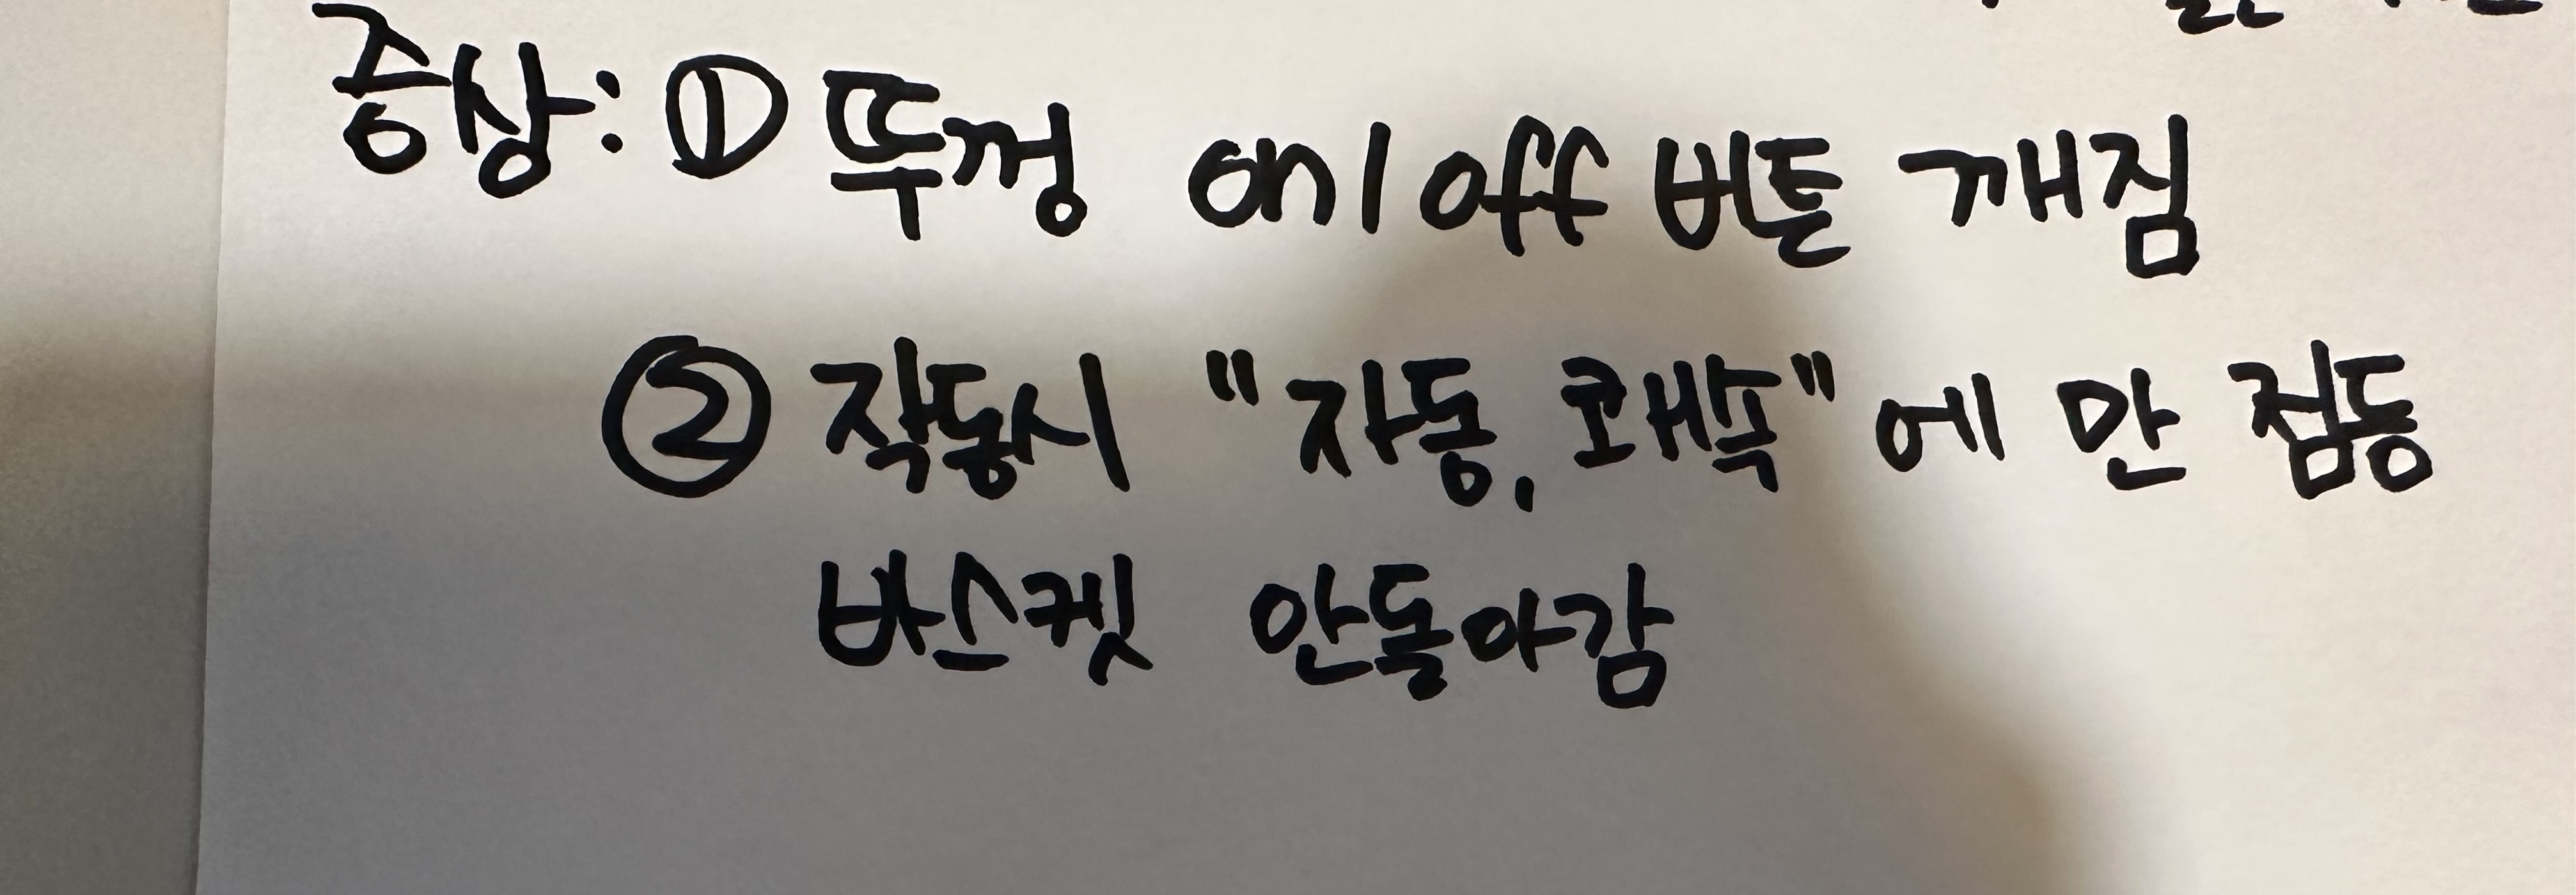 증상: ① 뚜껑 on/off 버튼 깨짐
② 작동시 "자동, 쾌속" 에 만 점등
바스켓 안돌아감